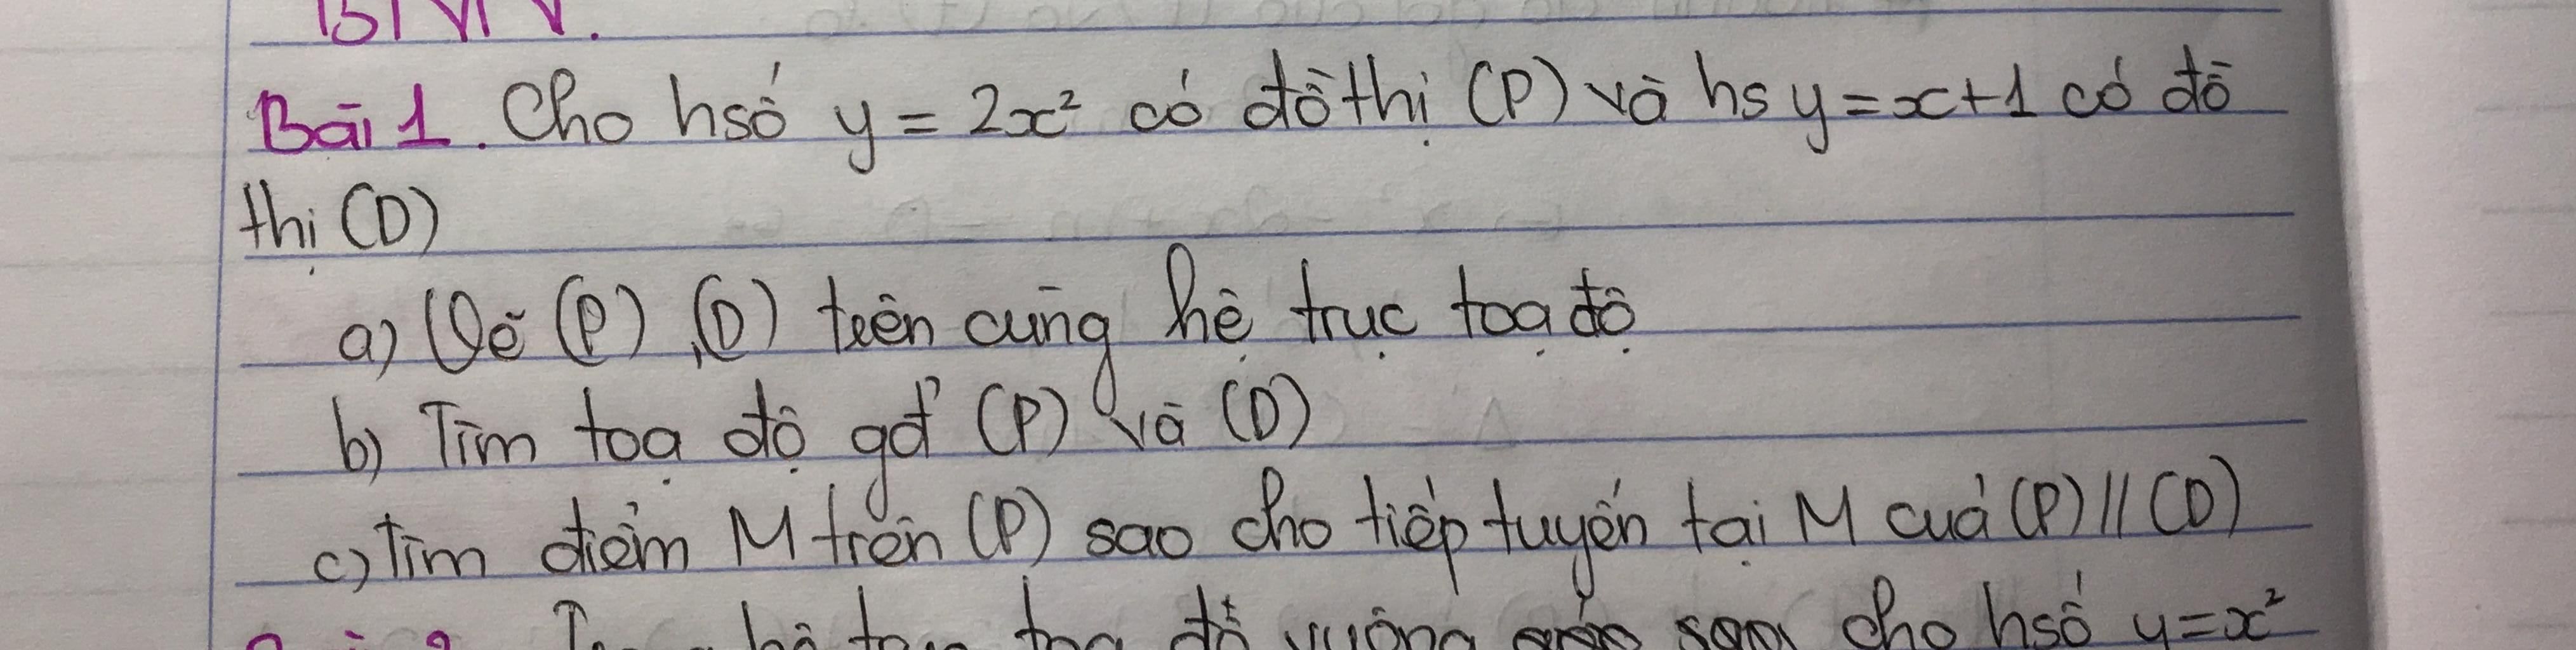 BTVN.
Bài 1. Cho hsố y = 2x² có đồ thị (P) và hs y = x+1 có đồ
thị (D)
a) Vẽ (P), (D) trên cùng hệ trục toạ độ
b) Tìm toạ độ gđ' (P) và (D)
c) Tìm điểm M trên (P) sao cho tiếp tuyến tại M của (P) // (D)
hệ toạ độ vuông cho hsố y=x²